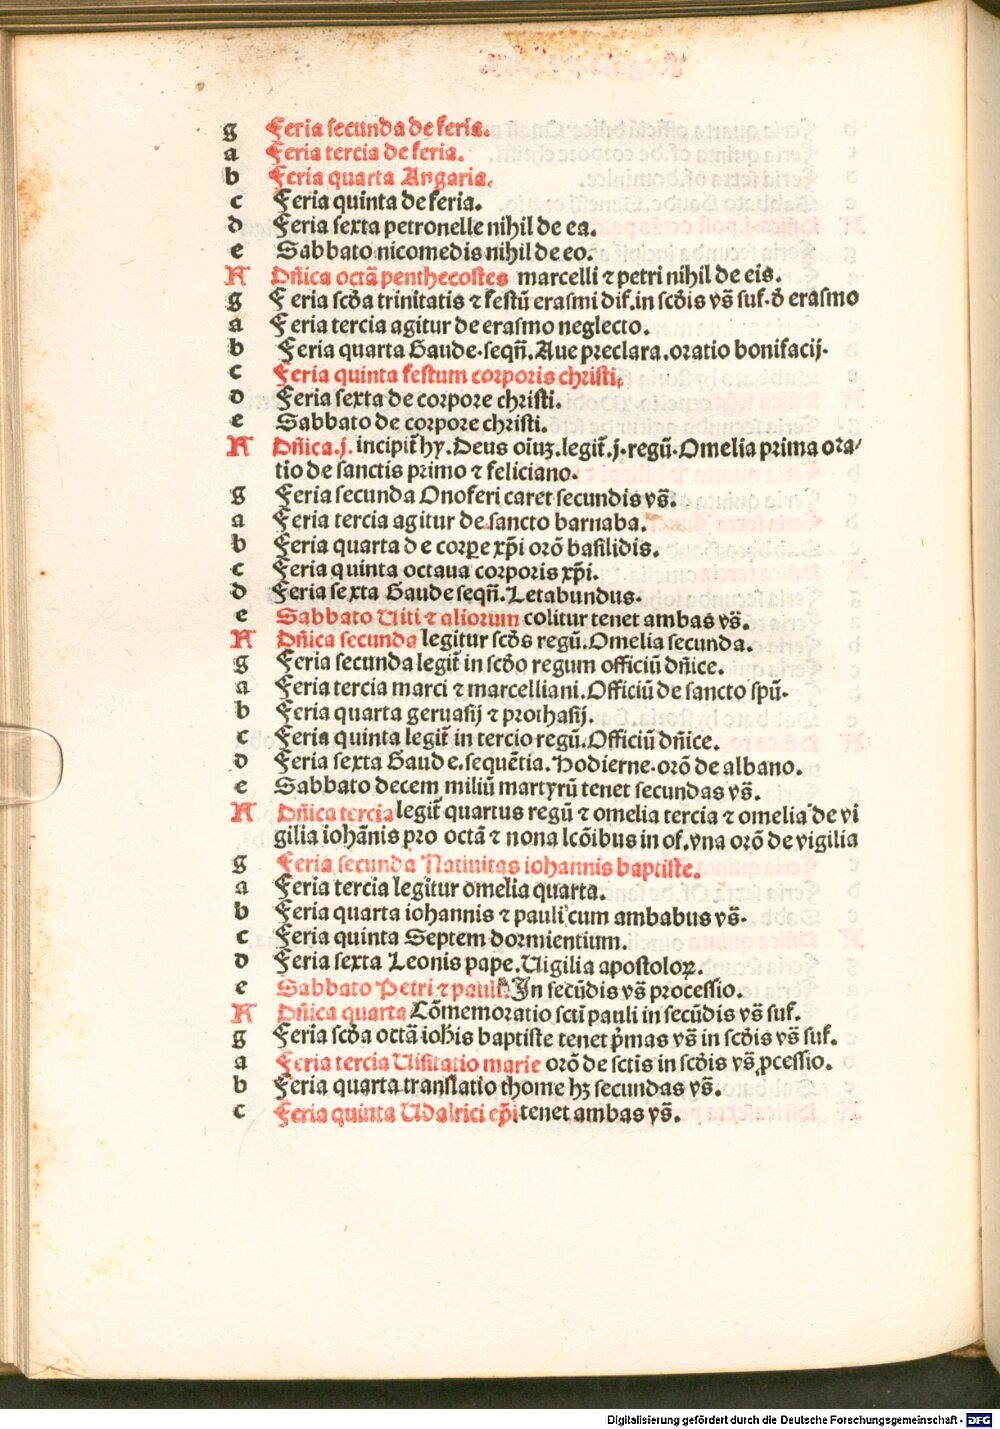 g Feria secunda de feria.
a Feria tercia de feria.
b Feria quarta Angaria.
c Feria quinta de feria.
d Feria sexta petronelle nihil de ea.
e Sabbato nicomedis nihil de eo.
A Dñica octã penthecostes marcelli ⁊ petri nihil de eis.
g Feria scďa trinitatis ⁊ festũ erasmi dif. in scďis vs̃ suf. ď erasmo
a Feria tercia agitur de erasmo neglecto.
b Feria quarta Gaude. seqñ. Aue preclara. oratio bonifacij.
c Feria quinta festum corporis christi.
d Feria sexta de corpore christi.
e Sabbato de corpore christi.
A Dñica. j. incipit̃ hy. Deus oiuꝫ. legit̃. j. regũ. Omelia prima ora/
tio de sanctis primo ⁊ feliciano.
g Feria secunda Onoferi caret secundis vs̃.
a Feria tercia agitur de sancto barnaba.
b Feria quarta de corꝑe xp̃i orõ basilidis.
c Feria quinta octaua corporis xp̃i.
d Feria sexta Gaude seqñ. Letabundus.
e Sabbato Uiti ⁊ aliorum colitur tenet ambas vs̃.
A Dñica secunda legitur scďs regũ. Omelia secunda.
g Feria secunda legit̃ in scďo regum officiũ dñice.
a Feria tercia marci ⁊ marcelliani. Officiũ de sancto spũ.
b Feria quarta geruasij ⁊ prothasij.
c Feria quinta legit̃ in tercio regũ. Officiũ dñice.
d Feria sexta Gaude. sequẽtia. Hodierne. orõ de albano.
e Sabbato decem miliũ martyrũ tenet secundas vs̃.
A Dñica tercia legit̃ quartus regũ ⁊ omelia tercia ⁊ omelia de vi
gilia iohãnis pro octã ⁊ nona lcõibus in of. vna orõ de vigilia
g Feria secunda Natiuitas iohannis baptiste.
a Feria tercia legitur omelia quarta.
b Feria quarta iohannis ⁊ pauli cum ambabus vs̃.
c Feria quinta Septem dormientium.
d Feria sexta Leonis pape. Uigilia apostoloꝝ.
e Sabbato Petri ⁊ pauli. In secũdis vs̃ processio.
A Dñica quarta Cõmemoratio scti pauli in secũdis vs̃ suf.
g Feria scďa octã ioh̃is baptiste tenet p̃mas vs̃ in scďis vs̃ suf.
a Feria tercia Uisitatio marie orõ de sctis in scďis vs̃ ꝓcessio.
b Feria quarta translatio thome hꝫ secundas vs̃.
c Feria quinta Udalrici ep̃i tenet ambas vs̃.
Digitalisierung gefördert durch die Deutsche Forschungsgemeinschaft - DFG